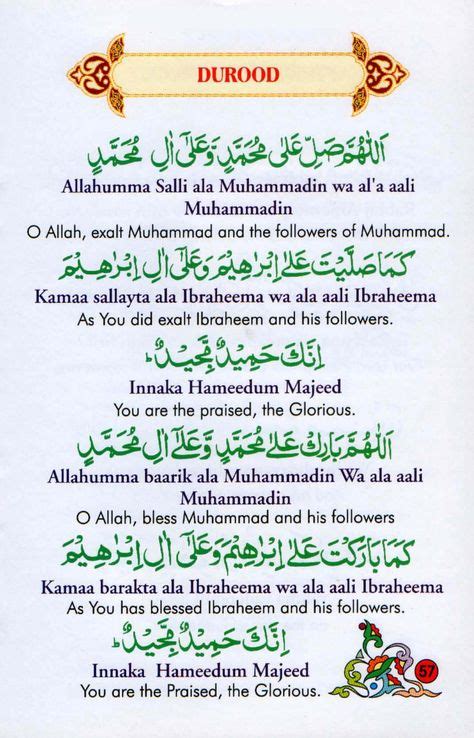 DUROOD
اَللّٰهُمَّ صَلِّ عَلٰى مُحَمَّدٍ وَّعَلٰٓى اٰلِ مُحَمَّدٍ
Allahumma Salli ala Muhammadin wa al'a aali
Muhammadin
O Allah, exalt Muhammad and the followers of Muhammad.
كَمَا صَلَّيْتَ عَلٰٓى اِبْرٰهِيْمَ وَعَلٰٓى اٰلِ اِبْرٰهِيْمَ
Kamaa sallayta ala Ibraheema wa ala aali Ibraheema
As You did exalt Ibraheem and his followers.
اِنَّكَ حَمِيْدٌ مَّجِيْدٌ ؕ
Innaka Hameedum Majeed
You are the praised, the Glorious.
اَللّٰهُمَّ بَارِكْ عَلٰى مُحَمَّدٍ وَّعَلٰٓى اٰلِ مُحَمَّدٍ
Allahumma baarik ala Muhammadin Wa ala aali
Muhammadin
O Allah, bless Muhammad and his followers
كَمَا بَارَكْتَ عَلٰٓى اِبْرٰهِيْمَ وَعَلٰٓى اٰلِ اِبْرٰهِيْمَ
Kamaa barakta ala Ibraheema wa ala aali Ibraheema
As You has blessed Ibraheem and his followers.
اِنَّكَ حَمِيْدٌ مَّجِيْدٌ ؕ
Innaka Hameedum Majeed
You are the Praised, the Glorious.
57